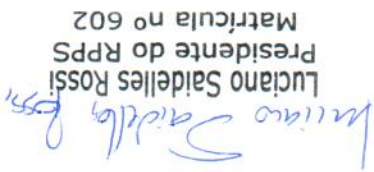 Luciano Saidelles Rossi
Luciano Saidelles Rossi
Presidente do RPPS
Matrícula nº 602